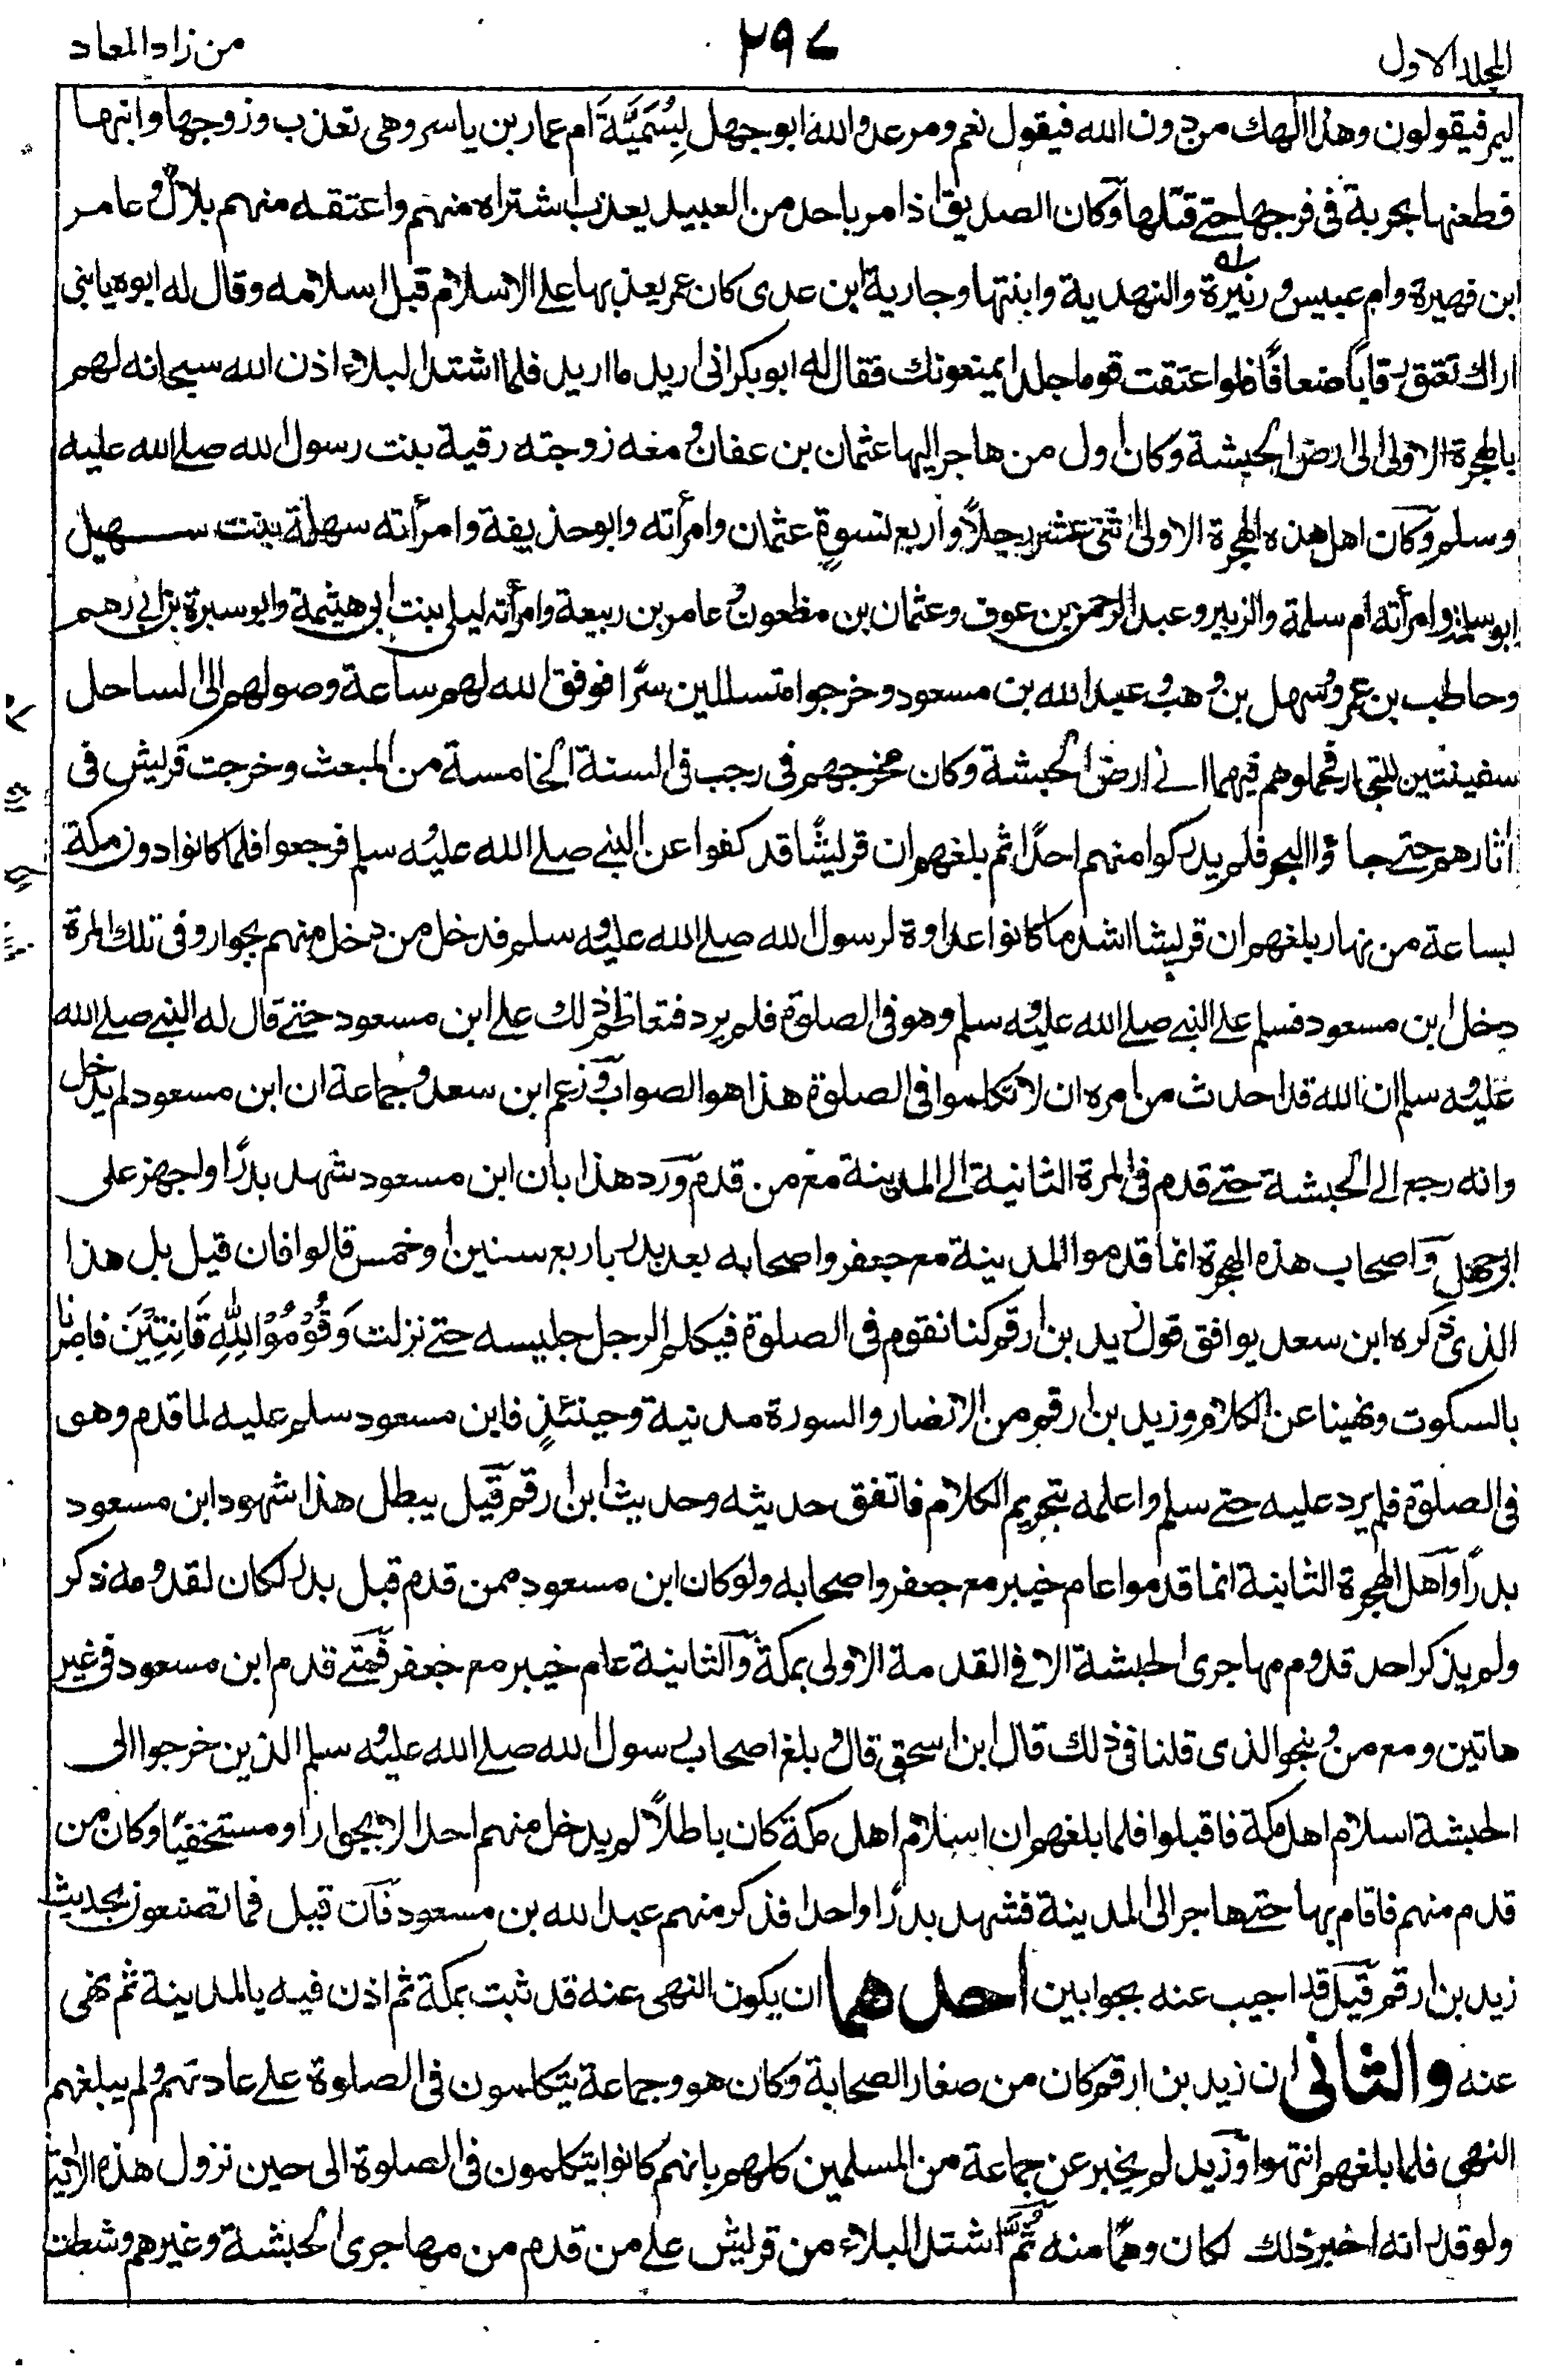 المجلد الاول
٢٩٧
من زاد المعاد
ليمر فيقولون وهذا الهك من دون الله فيقول نعم ومر عدو الله ابو جهل بِسُمَيَّةَ ام عمار بن ياسر وهى تعذب وزوجها وابنها
فطعنها بحربة فى فرجها حتے قتلها وكان الصديق اذا مر باحد من العبيد يعذب اشتراه منهم واعتقه منهم بلال وعامر
ابن فهيرة وام عبيس وزنيرة والنهدية وابنتها وجارية ابن عدى كان عمر يعذبها على الاسلام قبل اسلامه وقال له ابوه يابنى
اراك تعتق رقاباً ضعافًا فلو اعتقت قوما جلدا يمنعونك فقال له ابو بكر انى اريد ما اريد فلما اشتد البلاء اذن الله سبحانه لهم
بالهجرة الاولى الى ارض الحبشة وكان اول من هاجر اليها عثمان بن عفان ومعه زوجته رقية بنت رسول الله صلے الله عليه
وسلم وكان اهل هذه الهجرة الاولى اثنى عشر رجلاً واربع نسوةٍ عثمان وامرأته وابو حذيفة وامرأته سهلة بنت سهيل
ابو سلمة وامرأته ام سلمة والزبير وعبد الرحمن بن عوف وعثمان بن مظعون وعامر بن ربيعة وامرأته ليلى بنت ابى هيثمة وابو سبرة بن ابى رهم
وحاطب بن عمرو وسهل بن وهب وعبد الله بن مسعود وخرجوا متسللين سرًا فوفق الله لهم ساعة وصولهم الى الساحل
سفينتين للتجار فحملوهم فيهما الى ارض الحبشة وكان مخرجهم فى رجب فى السنة الخامسة من المبعث وخرجت قريش فى
اثارهم حتے جاؤا البحر فلم يدركوا منهم احدًا ثم بلغهم ان قريشًا قد كفوا عن النبے صلے الله عليه وسلم فرجعوا فلما كانوا دون مكة
بساعة من نهار بلغهم ان قريشا اشد ما كانوا عداوة لرسول الله صلے الله عليه وسلم فدخل من دخل منهم بجوار وفى تلك المرة
دخل ابن مسعود فسلم على النبے صلے الله عليه وسلم وهو فى الصلوة فلم يرد فتعاظم ذلك على ابن مسعود حتے قال له النبے صلے الله
عليه وسلم ان الله قد احدث من امره ان لا تكلموا فى الصلوة هذا هو الصواب وزعم ابن سعد وجماعة ان ابن مسعود لم يدخل
وانه رجع الى الحبشة حتے قدم فى المرة الثانية الى المدينة مع من قدم ورد هذا بأن ابن مسعود شهد بدرًا واجهز على
ابى جهل واصحاب هذه الهجرة انما قدموا المدينة مع جعفر واصحابه بعد بدر باربع سنين او خمس قالوا فان قيل بل هذا
الذى ذكره ابن سعد يوافق قول زيد بن ارقم كنا نقوم فى الصلوة فيكلم الرجل جليسه حتے نزلت وَقُوْمُوْا لِلّٰهِ قَانِتِيْنَ فامرنا
بالسكوت ونهينا عن الكلام وزيد بن ارقم من الانصار والسورة مدنية وحينئذٍ فابن مسعود سلم عليه لما قدم وهو
فى الصلوة فلم يرد عليه حتے سلم واعلمه بتحريم الكلام فاتفق حديثه وحديث ابن ارقم قيل يبطل هذا شهود ابن مسعود
بدرًا واهل الهجرة الثانية انما قدموا عام خيبر مع جعفر واصحابه ولو كان ابن مسعود ممن قدم قبل بدر لكان لقدومه ذكر
ولم يذكر احد قدوم مهاجرى الحبشة الا فى القدمة الاولى بمكة والثانية عام خيبر مع جعفر فمتے قدم ابن مسعود فى غير
هاتين ومع من وبنحو الذى قلنا فى ذلك قال ابن اسحق قال وبلغ اصحاب رسول الله صلے الله عليه وسلم الذين خرجوا الى
الحبشة اسلام اهل مكة فاقبلوا فلما بلغهم ان اسلام اهل مكة كان باطلاً لم يدخل منهم احد الا بجوار او مستخفيًا وكان من
قدم منهم فاقام بها حتے هاجر الى المدينة فشهد بدرًا واحدا فذكر منهم عبد الله بن مسعود فان قيل فما تصنعون بحديث
زيد بن ارقم قيل قد اجيب عنه بجوابين احدهما ان يكون النهى عنه قد ثبت بمكة ثم اذن فيه بالمدينة ثم نهى
عنه والثانى ان زيد بن ارقم كان من صغار الصحابة وكان هو وجماعة يتكلمون فى الصلوة على عادتهم ولم يبلغهم
النهى فلما بلغهم انتهوا وزيد لم يخبر عن جماعة من المسلمين كلهم بانهم كانوا يتكلمون فى الصلوة الى حين نزول هذه الاية
ولو قدر انه اخبر ذلك لكان وهمًا منه ثُمَّ اشتد البلاء من قريش على من قدم من مهاجرى الحبشة وغيرهم وشطت